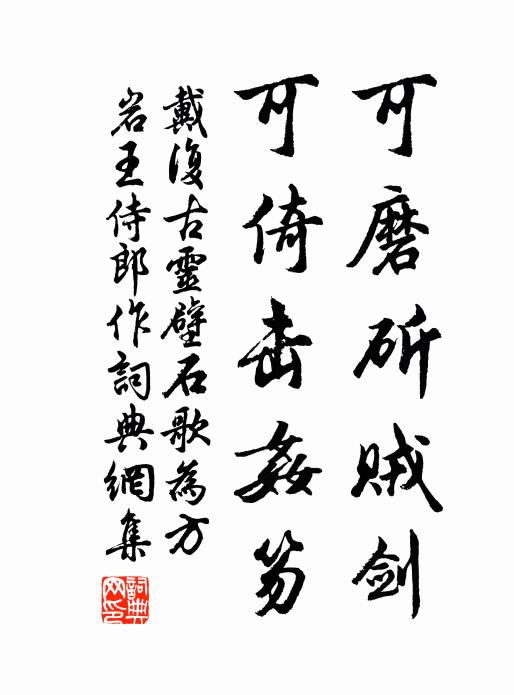 可磨斫賊劍
可倚击姦笏
戴復古靈壁石歌為方
岩王侍郎作詞典網集
詞典
网印